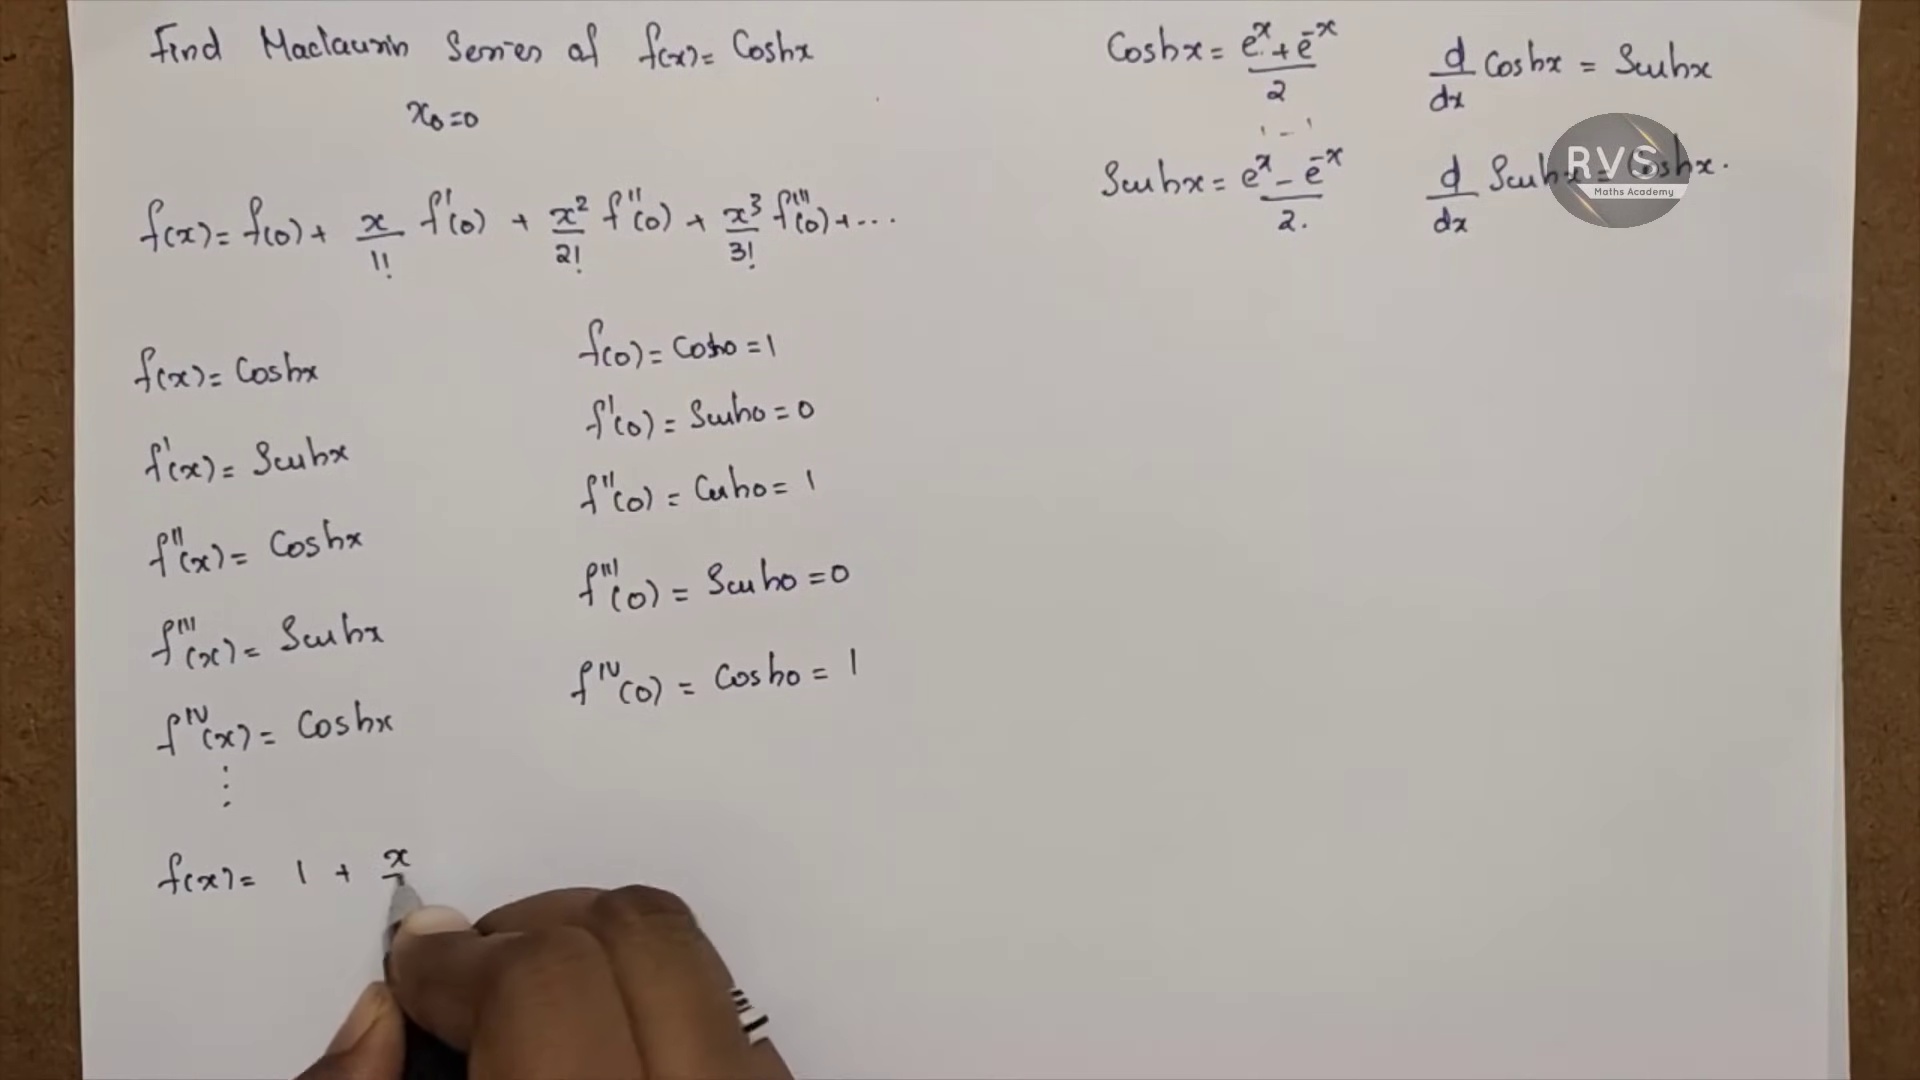 Find Maclaurin Series of f(x) = Coshx
x₀=0
f(x) = f(0) + x/1! f'(0) + x²/2! f''(0) + x³/3! f'''(0) + ...
f(x) = Coshx
f'(x) = Sinhx
f''(x) = Coshx
f'''(x) = Sinhx
f^IV(x) = Coshx
⋮
f(0) = Cosh0 = 1
f'(0) = Sinh0 = 0
f''(0) = Cosh0 = 1
f'''(0) = Sinh0 = 0
f^IV(0) = Cosh0 = 1
f(x) = 1 + x
Coshx = (e^x + e^-x)/2
Sinhx = (e^x - e^-x)/2.
d/dx Coshx = Sinhx
d/dx Sinhx = Coshx.
RVS
Maths Academy